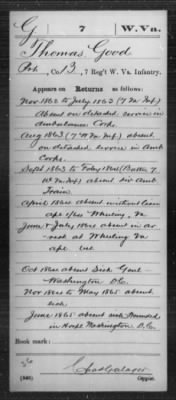 G | 7 | W. Va.
Thomas Good
Pvt., Co. B, 7 Reg't W. Va. Infantry.
Appears on Returns as follows:
Nov 1862 to July 1863 (7 W. Va. Inf)
Absent on detached service in
Ambulance Corp.
Aug 1863 (7 W Va Inf) absent
on detached service in Amb
Corps.
Sept 1863 to Feby 1864 (Batt 7
W. Va Inf) absent Amb
Train
April 1864 absent without leave
Wheeling, Va
June & July 1864 absent in ar-
rest at Wheeling Va
Oct 1864 absent Sick Genl
Washington D.C.
Nov 1864 to May 1865 absent
sick
June 1865 absent sick Wounded
in Hosp. Washington D.C.
Book mark:
(546)
Copyist.